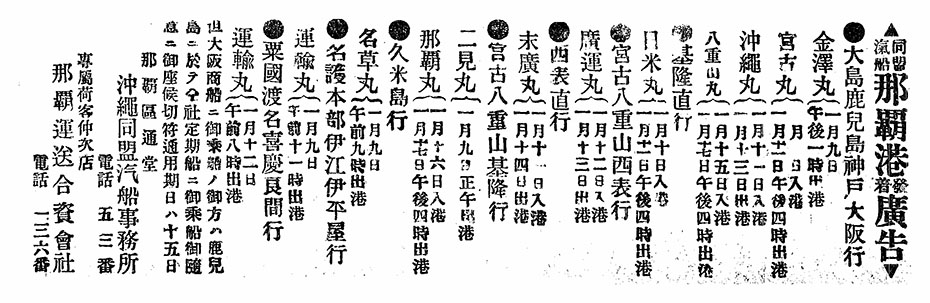 ▲同盟汽船那覇港發着廣告▼
●大島鹿兒島神戸大阪行
金澤丸 一月九日 午後一時出港
宮古丸 入港 一月十二日午後四時出港
沖繩丸 一月十一日入港 一月十三日出港
八重山丸 入港 一月十五日午後四時出港
●基隆直行
日米丸 一月十日入港 午後四時出港
●宮古八重山西表行
廣運丸 一月十二日入港 一月十三日出港
●西表直行
末廣丸 入港 一月十四日出港
●宮古八重山基隆行
二見丸 一月九日正午出港
那覇丸 一月十六日入港 一月十七日午後四時出港
●久米島行
名草丸 一月九日 午前九時出港
●名護本部伊江伊平屋行
運輸丸 一月九日 午前十一時出港
●粟國渡名喜慶良間行
運輸丸 一月十二日 午前八時出港
但大阪商船ニ御乘船ノ御方ハ鹿兒
島ニ於テ仝社定期船ニ御乘船御隨
意ニ御座候切符通用期日ハ十五日
那覇區通堂
沖繩同盟汽船事務所
電話 五三番
專屬荷客仲次店
那覇運送合資會社
電話 一三六番